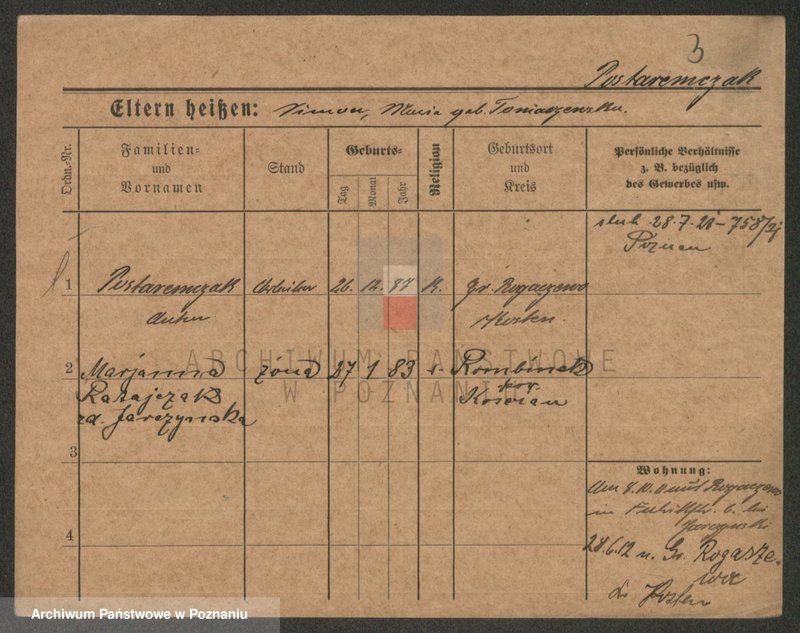 3
Postaremczak
Eltern heißen: Simon, Maria geb. Toniaczewska.
Ordn.-Nr.
Familien- und Vornamen
Stand
Geburts-
Tag
Monat
Jahr
Religion
Geburtsort und Kreis
Persönliche Verhältnisse
z. B. bezüglich
des Gewerbes usw.
slub 28.7.21 - 758/21
Poznan
1 Postaremczak Arbeiter 26. 12. 87 K. Gr. Rogaczewo
Anton Kosten.
2 Marjanna żona 27 1 83 Rombinek
Ratajczak pow. Kościan
zd. Jarczynska
3
Wohnung:
Am 8.10.11 aus Rogaczewo
in 6. bei
Jarczynski
4
28.6.12 n. Gr. Rogasze-
woe
Kr. Kosten
ARCHIWUM PAŃSTWOWE
W POZNANIU
Archiwum Państwowe w Poznaniu